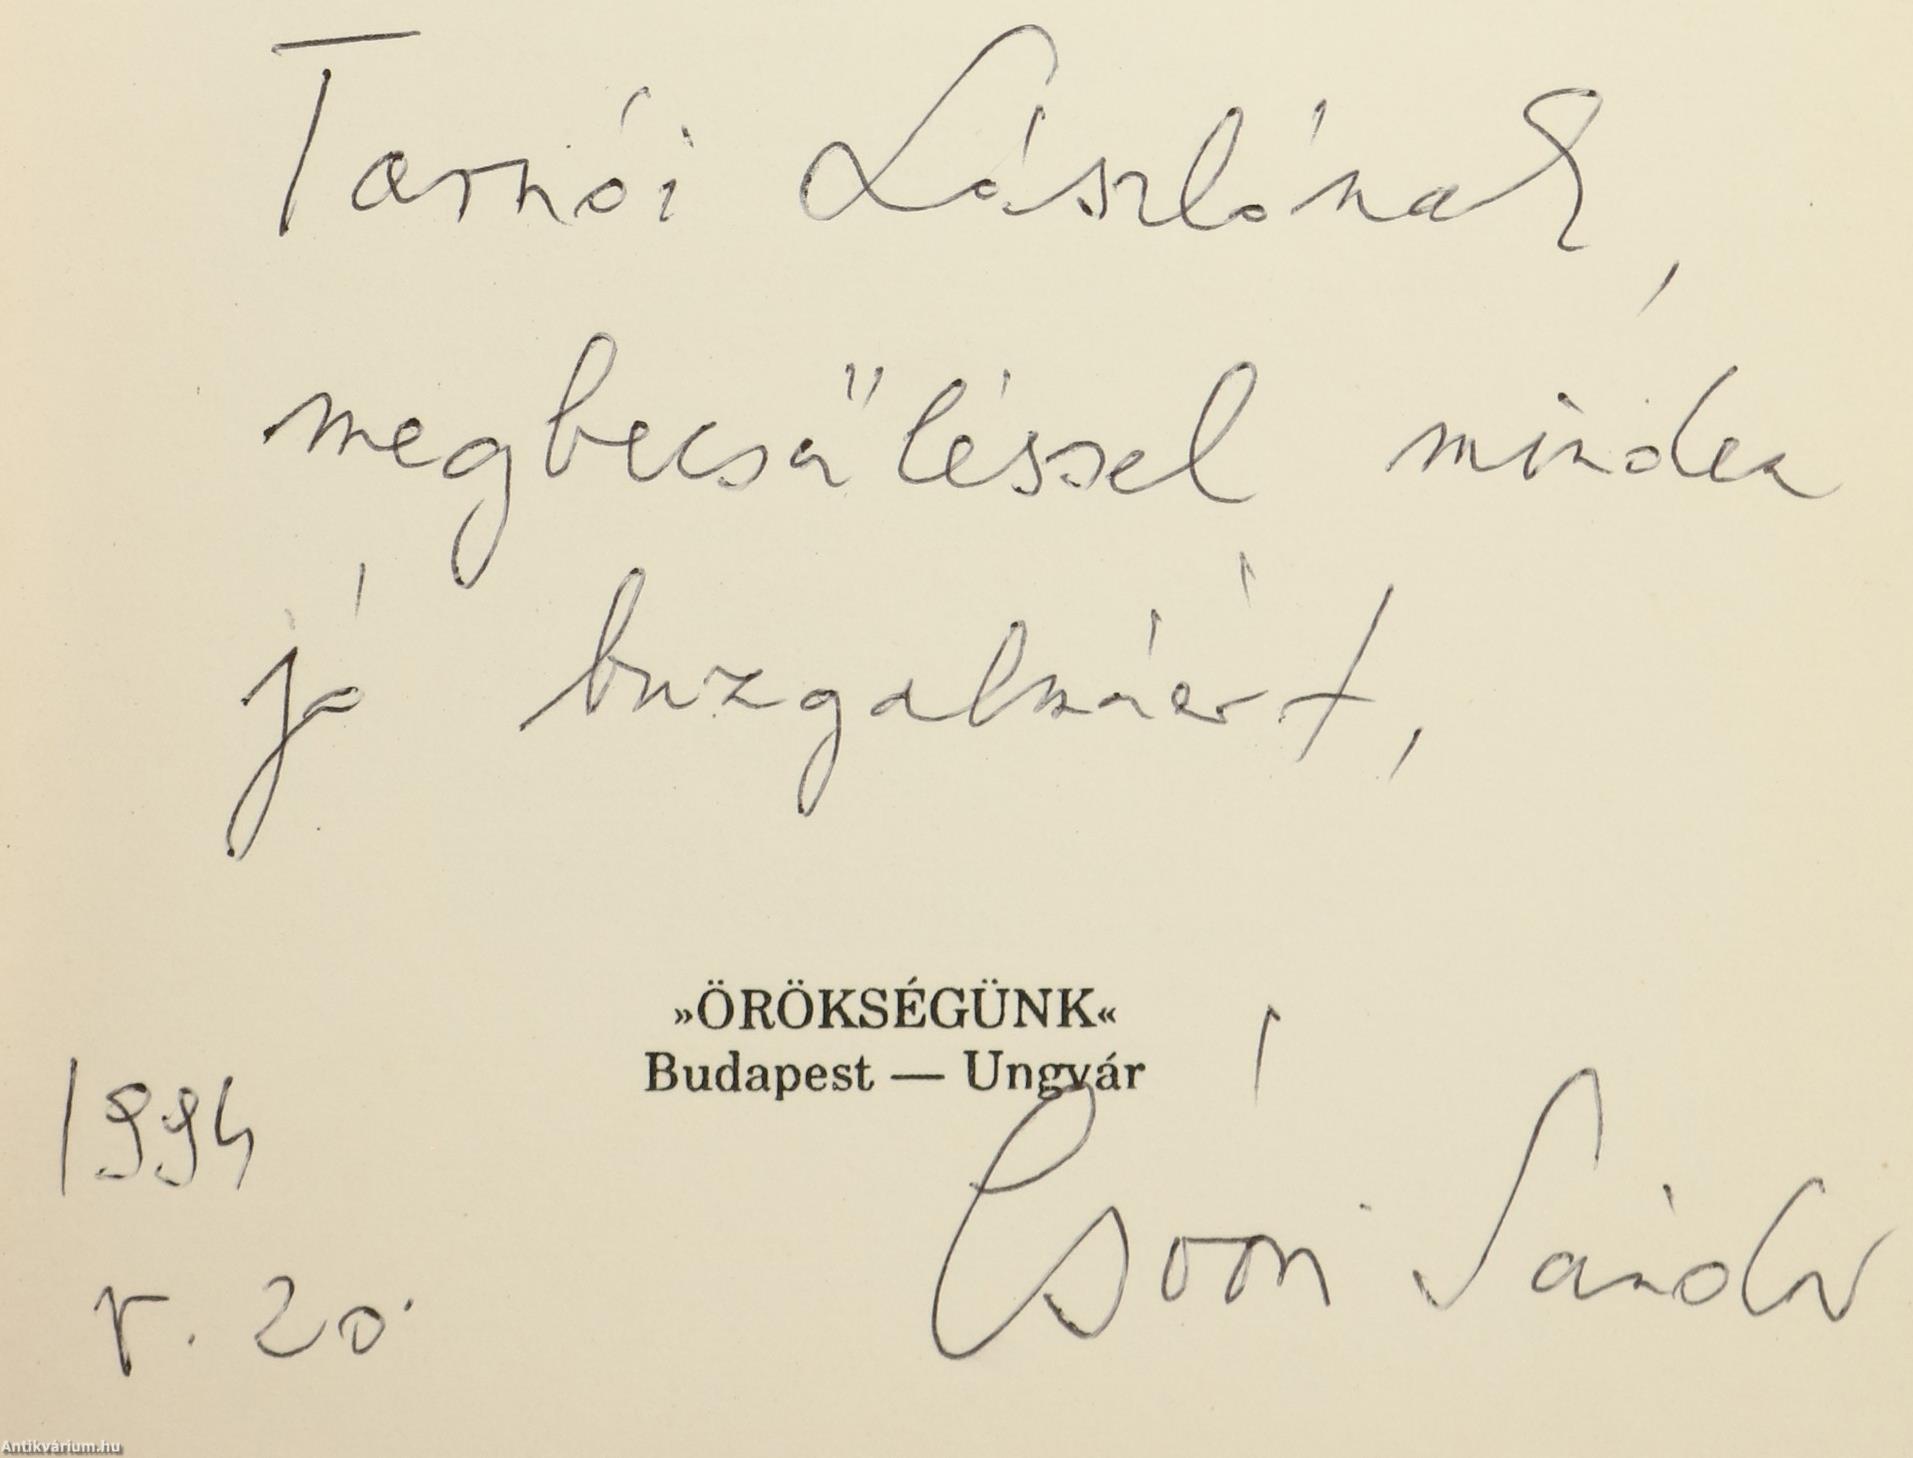 Tarnói Lászlónak,
megbecsüléssel minden
jó buzgalmáért,
»ÖRÖKSÉGÜNK«
Budapest — Ungvár
1994
V. 20.
Csoóri Sándor
Antikvárium.hu